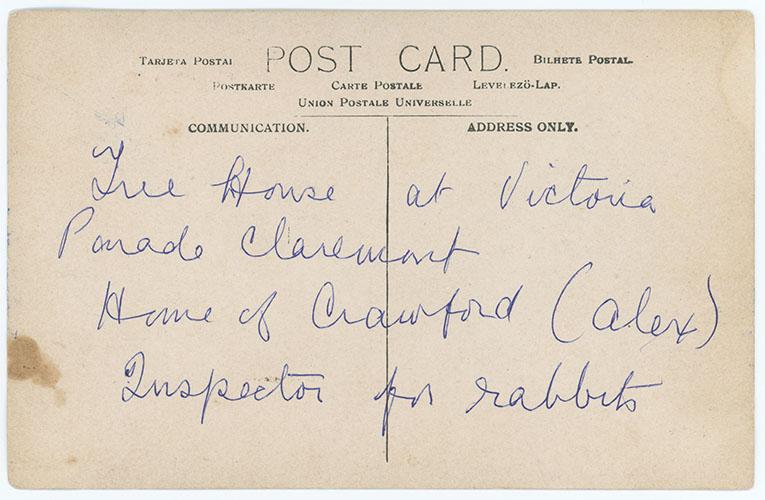 TARJETA POSTAL POST CARD. BILHETE POSTAL.
POSTKARTE CARTE POSTALE LEVELEZÖ-LAP.
UNION POSTALE UNIVERSELLE
COMMUNICATION. ADDRESS ONLY.
Tree House at Victoria
Parade Claremont
Home of Crawford (Alex)
Inspector for rabbits